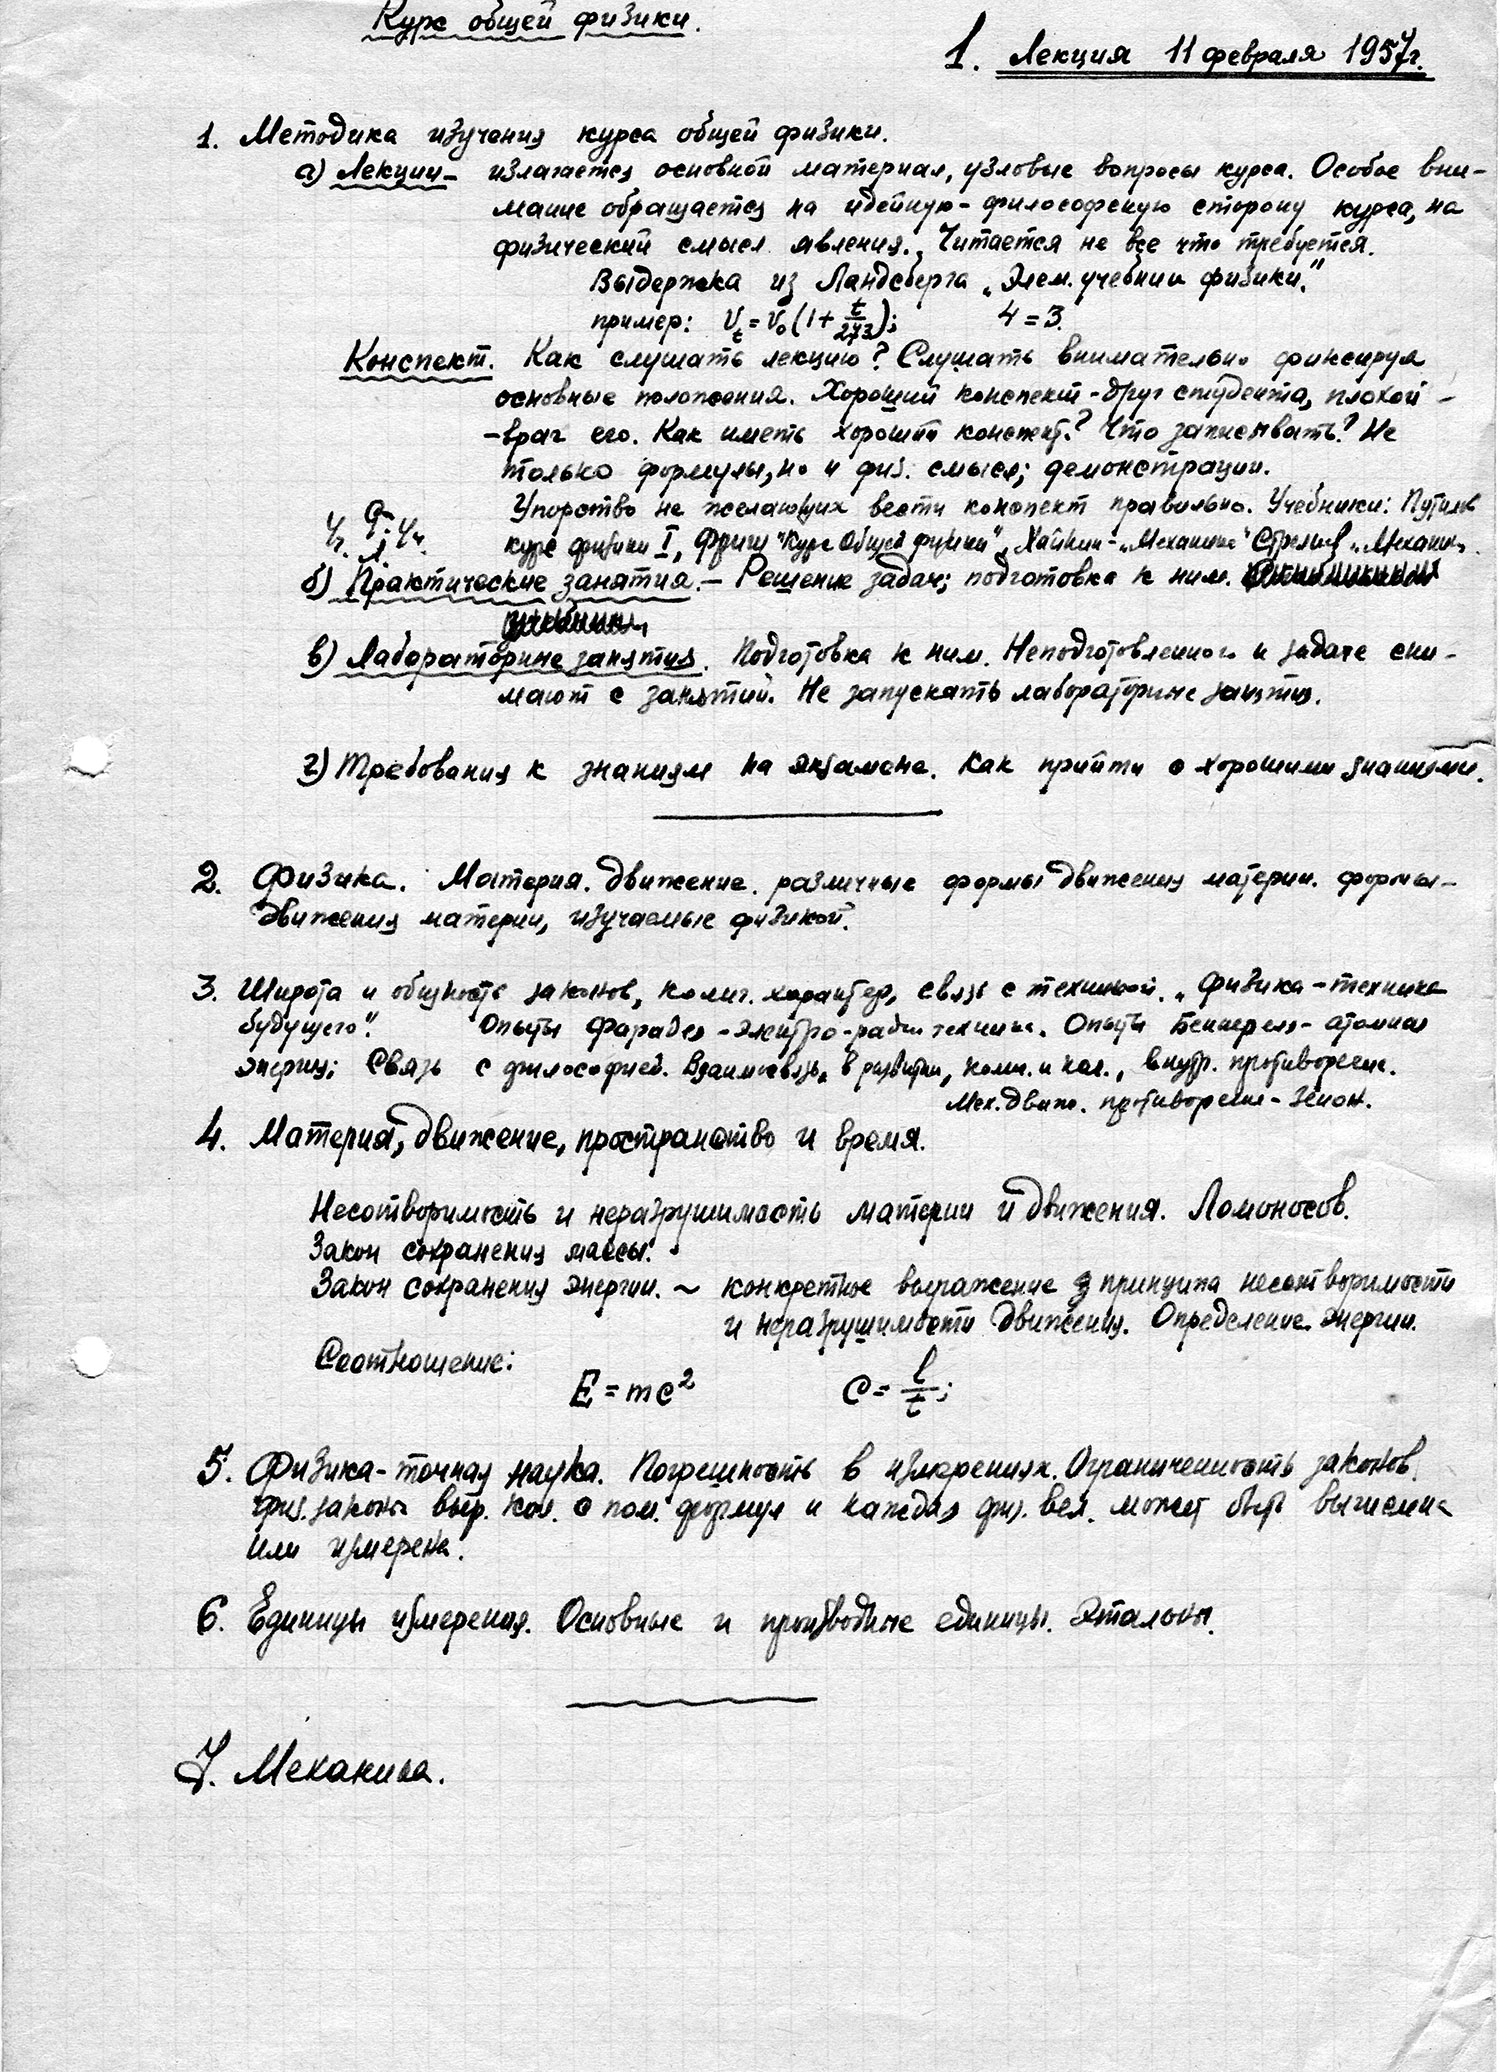 Курс общей физики.
1. Лекция 11 февраля 1957г.
1. Методика изучения курса общей физики.
а) Лекции – излагается основной материал, узловые вопросы курса. Особое вни-
мание обращается на идейную-философскую сторону курса, на
физический смысл явления. Читается не все что требуется.
Выдержка из Ландсберга „Элем. учебник физики."
пример: Vt = V0 (1 + t/273); 4 = 3.
Конспект. Как слушать лекцию? Слушать внимательно фиксируя
основные положения. Хороший конспект - друг студента, плохой -
- враг его. Как иметь хороший конспект? Что записывать? Не
только формулы, но и физ. смысл; демонстрации.
Упорство не желающих вести конспект правильно. Учебники: Путилов
курс физики I, Фриш "Курс Общей физики", Хайкин - „Механика" Стрелков „Механика".
б) Практические занятия. – Решение задач; подготовка к ним.
в) Лабораторные занятия. Подготовка к ним. Неподготовленного к задаче сни-
мают с занятий. Не запускать лабораторные занятия.
г) Требования к знаниям на экзамене. Как прийти с хорошими знаниями.
2. Физика. Материя. движение. различные формы движения материи. формы-
движения материи, изучаемые физикой.
3. Широта и общность законов, колич. характер, связь с техникой. „Физика - техника
будущего". Опыты Фарадея - электро-радиотехника. Опыты Беккереля - атомная
энергия; Связь с философией. Взаимосвязь, в развитии, колич. и кач., внутр. противоречие.
Мех. движ. противоречие - Зенон.
4. Материя, движение, пространство и время.
Несотворимость и неразрушимость материи и движения. Ломоносов.
Закон сохранения массы.
Закон сохранения энергии. ~ конкретное выражение принципа несотворимости
и неразрушимости движения. Определение энергии.
Соотношение:
E = mc² c = l/t;
5. Физика - точная наука. Погрешность в измерениях. Ограниченность законов.
физ. законы выр. кол. с пом. формул и каждая физ. вел. может быть вычислена
или измерена.
6. Единицы измерения. Основные и производные единицы. Эталоны.
7. Механика.